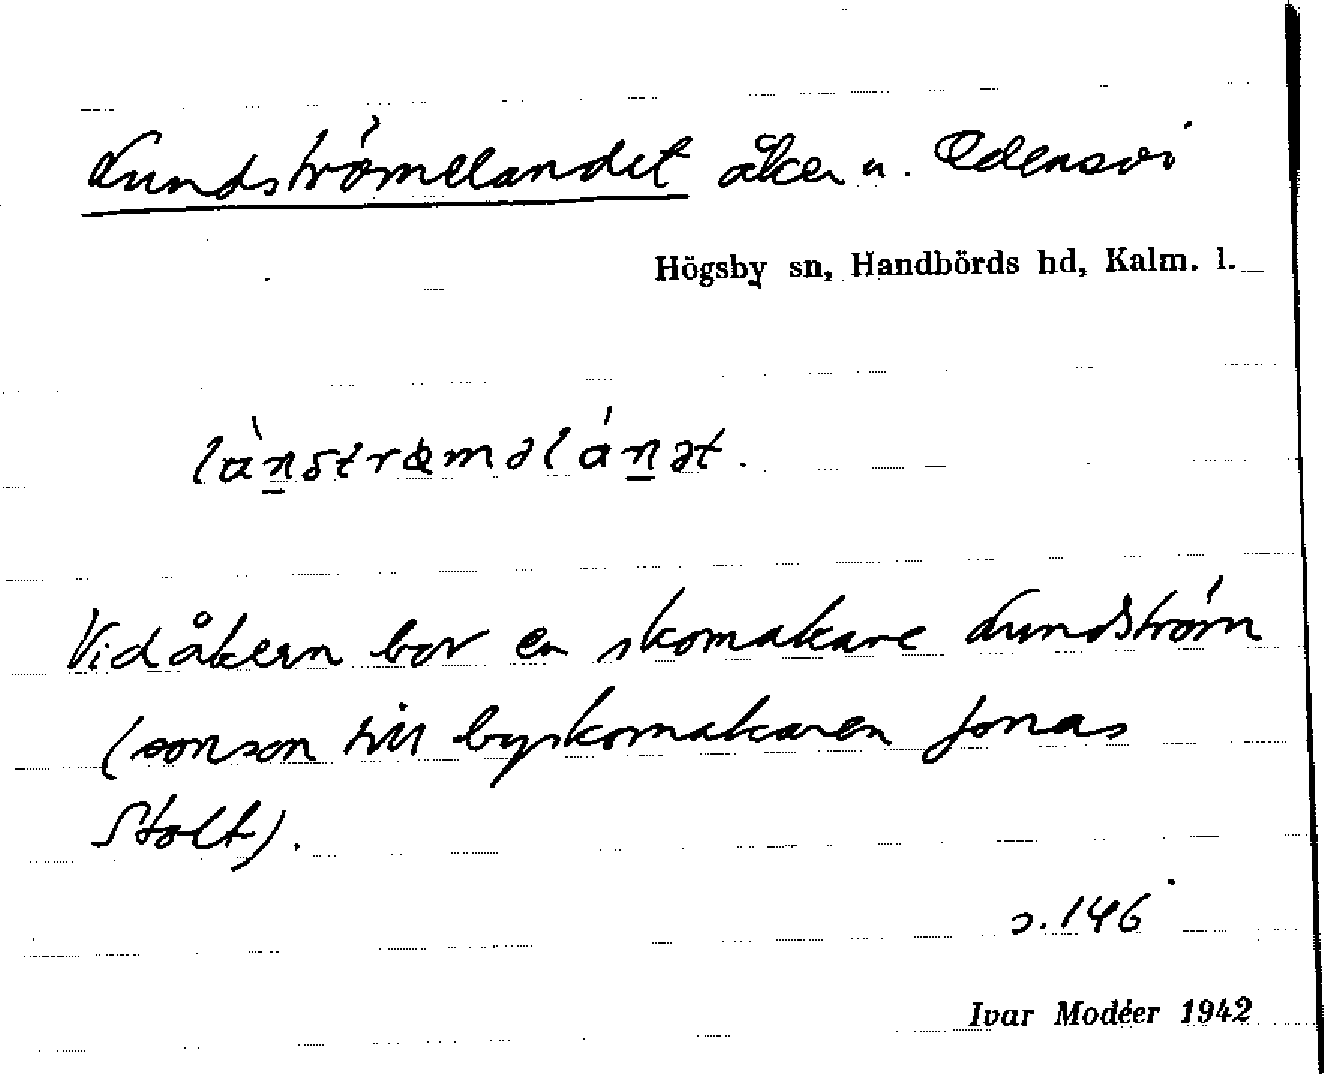 Lundströmelandet åker u. Ödensvi
Högsby sn, Handbörds hd, Kalm. l.
lànstrœməlánət.
Vid åkern bor en skomakare Lundström
(sonson till byskomakaren Jonas
Stolt).
s. 146
Ivar Modéer 1942